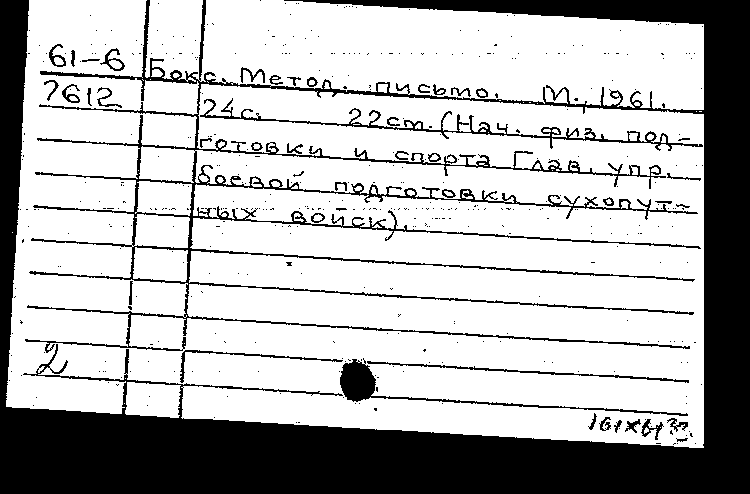 61-6 Бокс. Метод. письмо. М., 1961.
7612 24с. 22см. (Нач. физ. под-
готовки и спорта Глав. упр.
боевой подготовки сухопут-
ных войск).
2